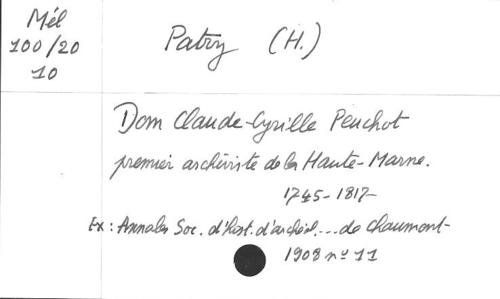 Mél
100/20
10
Patry (H.)
Dom Claude-Cyrille Peuchot
premier archiviste de la Haute-Marne.
1745-1817
Ex : Annales Soc. d'hist. d'archéol.... de Chaumont-
1908 n° 11